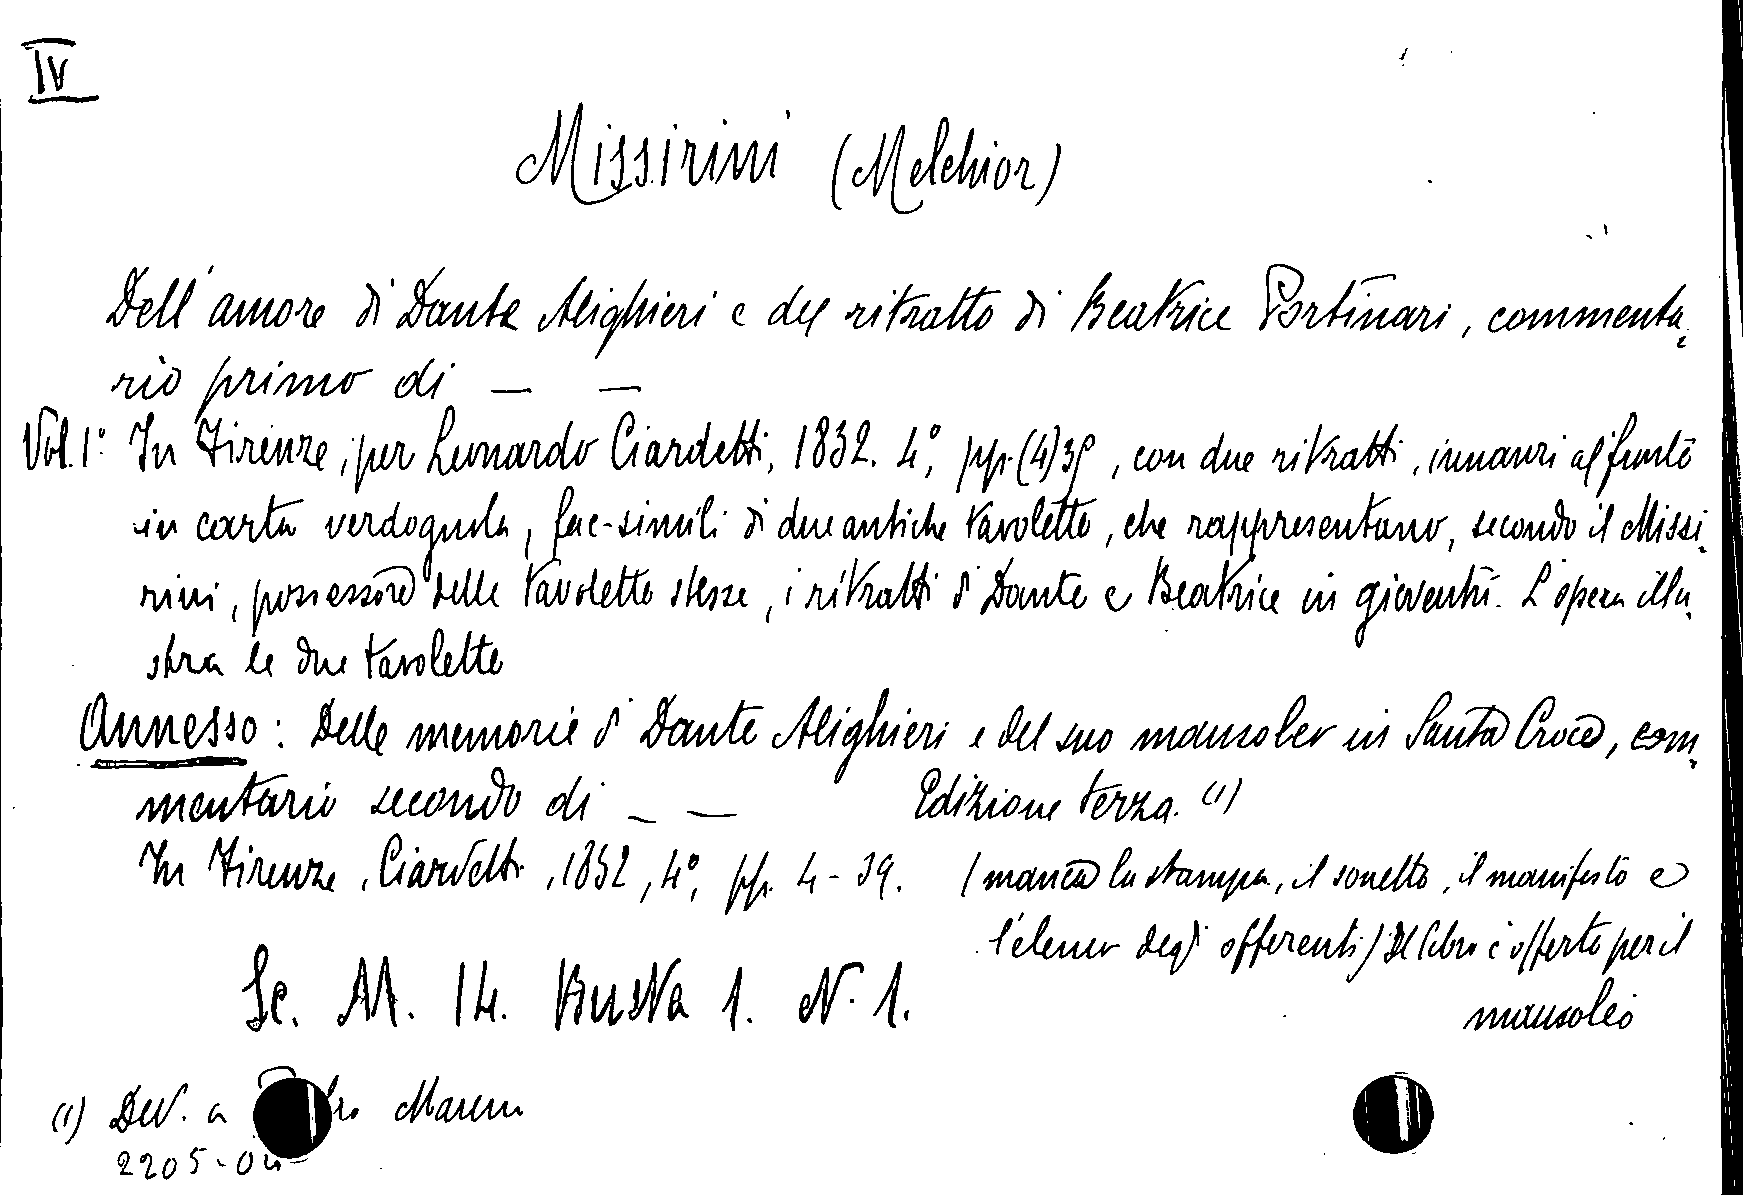 IV
Missirini (Melchior)
Dell'amore di Dante Alighieri e del ritratto di Beatrice Portinari, commenta-
rio primo di — —
Vol. 1° In Firenze, per Leonardo Ciardetti, 1832. 4°, pp. (4) 39, con due ritratti, innanzi al fronte
in carta verdognola, fac-simili di due antiche tavolette, che rappresentano, secondo il Missi-
rini, possessore delle tavolette stesse, i ritratti di Dante e Beatrice in gioventù. L'opera illu-
stra le due tavolette
Annesso: Delle memorie di Dante Alighieri e del suo mausoleo in Santa Croce, com-
mentario secondo di — — Edizione terza. (1)
In Firenze, Ciardetti, 1832, 4°, pp. 4-39. (manca la stampa, il sonetto, il manifesto e
l'elenco degli offerenti) Il libro è offerto per il
mausoleo
Sc. M. 14. Busta 1. N. 1.
(1) Ded. a
2205-04